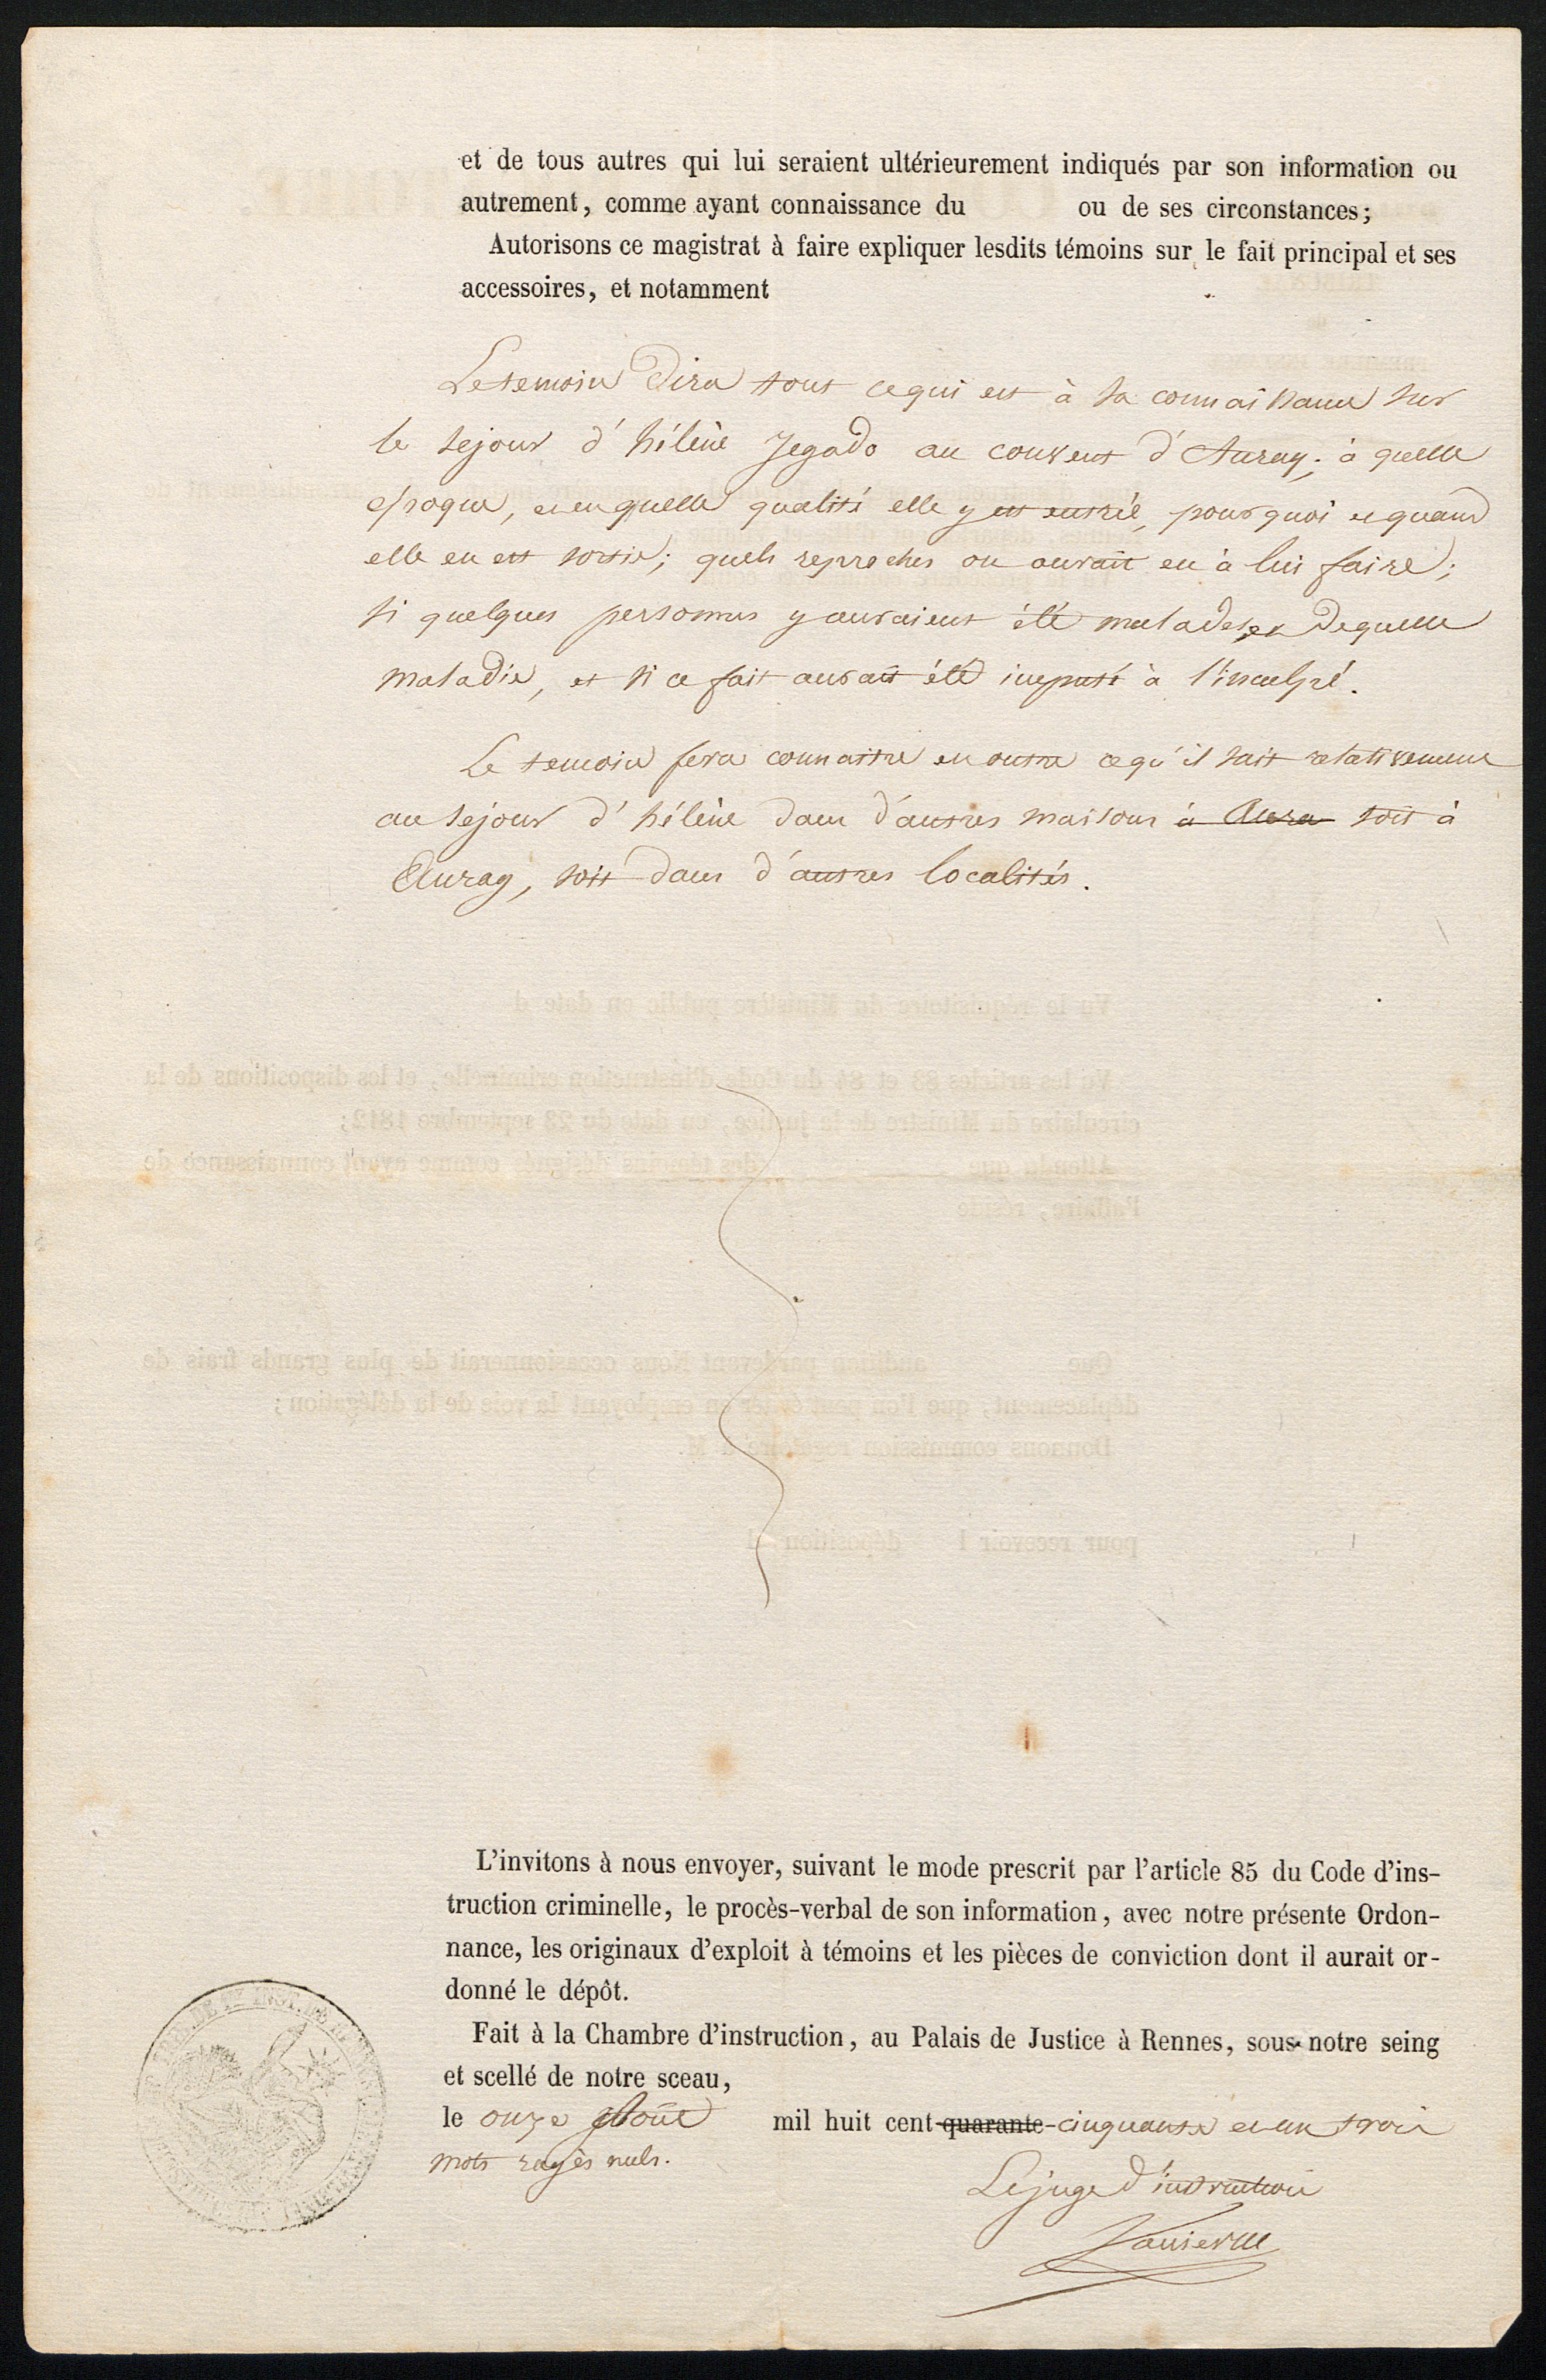 et de tous autres qui lui seraient ultérieurement indiqués par son information ou
autrement, comme ayant connaissance du ou de ses circonstances;
Autorisons ce magistrat à faire expliquer lesdits témoins sur le fait principal et ses
accessoires, et notamment
Le temoin dira tout ce qui est à sa connaissance sur
le sejour d'hélène Jegado au couvent d'Auray; à quelle
epoque, et en quelle qualité elle y est entrée, pourquoi et quand
elle en est sortie; quels reproches on aurait eu à lui faire;
si quelques personnes y auraient été malades, et de quelle
maladie, et si ce fait aurait été imputé à l'inculpé.
Le temoin fera connaitre en outre ce qu'il sait relativement
au sejour d'hélène dans d'autres maisons à Aura soit à
Auray, soit dans d'autres localités.
L'invitons à nous envoyer, suivant le mode prescrit par l'article 85 du Code d'ins-
truction criminelle, le procès-verbal de son information, avec notre présente Ordon-
nance, les originaux d'exploit à témoins et les pièces de conviction dont il aurait or-
donné le dépôt.
Fait à la Chambre d'instruction, au Palais de Justice à Rennes, sous notre seing
et scellé de notre sceau,
le onze Aout mil huit cent quarante-cinquante et un trois
mots rayés nuls.
Le juge d'instruction